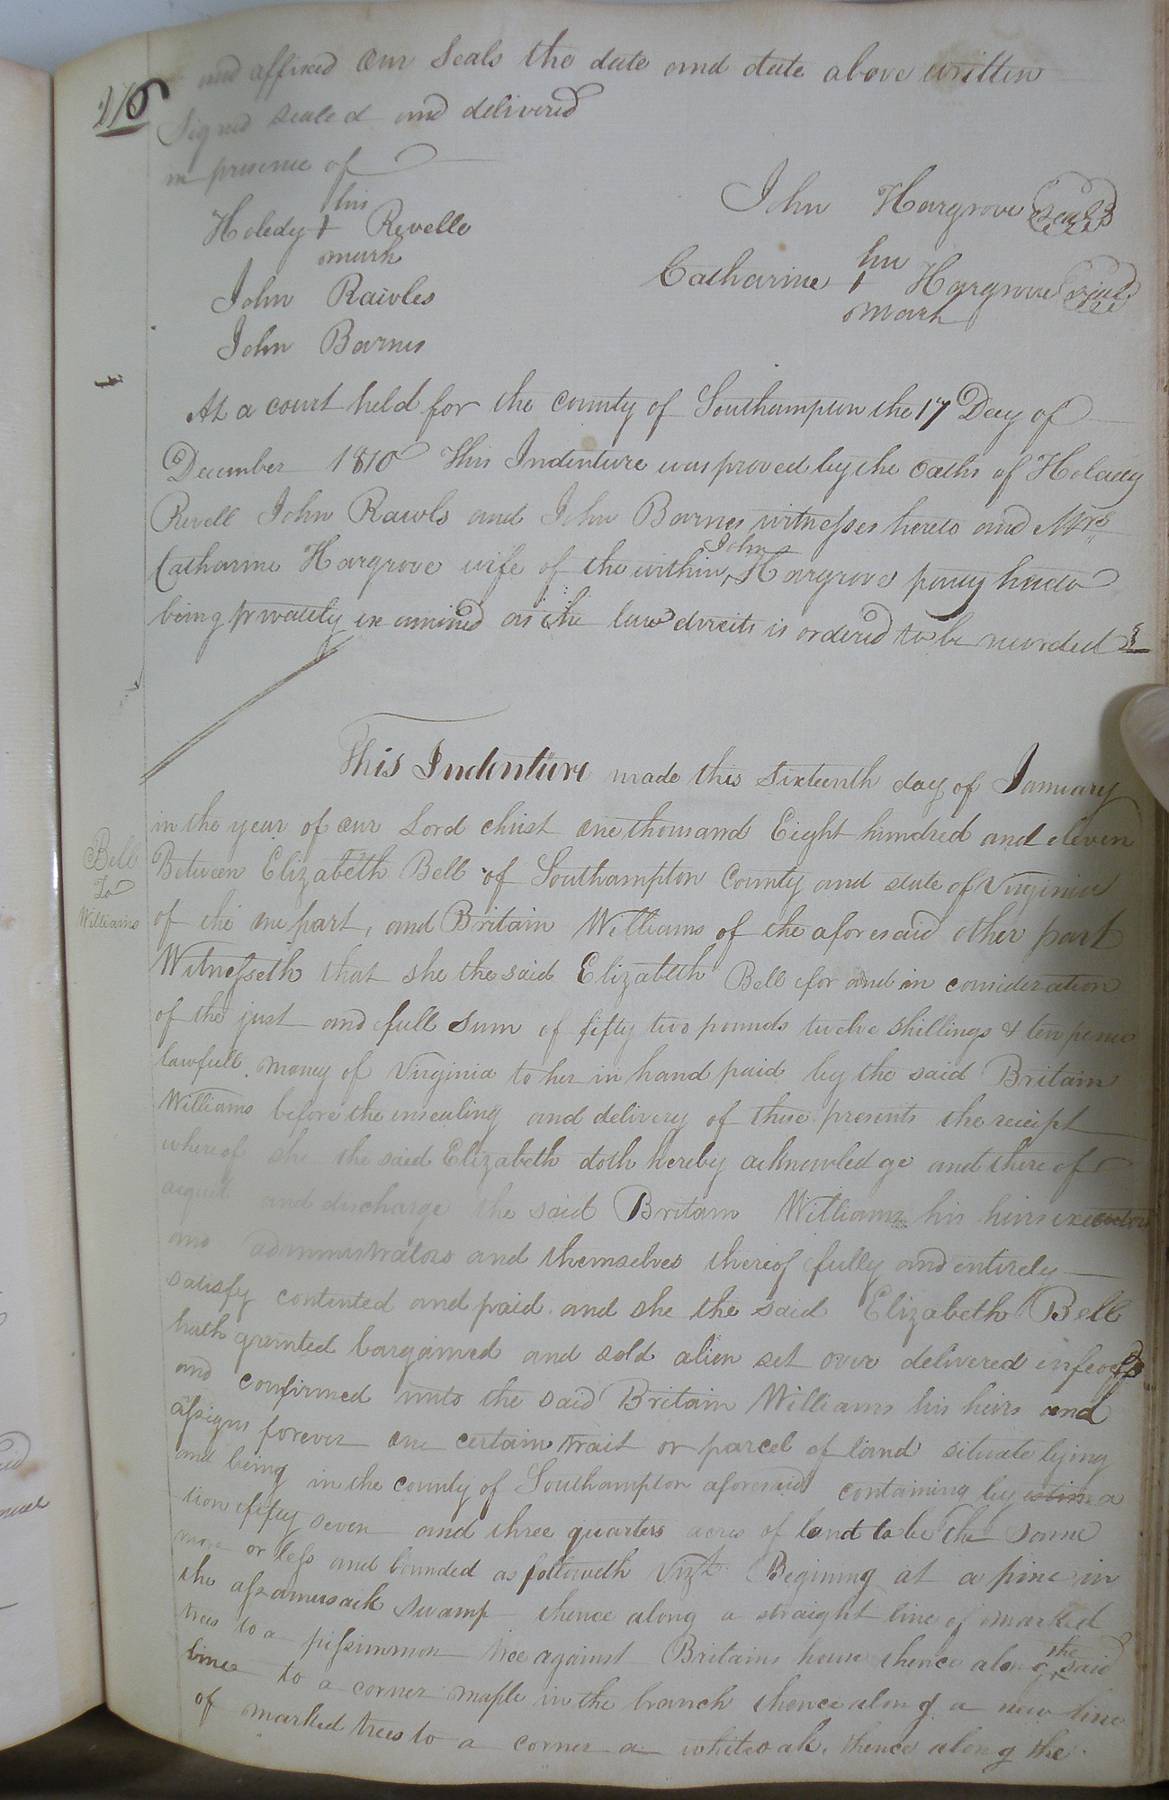 216
and affixed our Seals the date and date above written
Signed sealed and delivered
in presence of
his
Holedy + Revelle
mark
John Rawles
John Barnes
John Hargrove Seal
her
Catharine + Hargrove Seal
mark
At a court held for the county of Southampton the 17 Day of
December 1810 This Indenture was proved by the oaths of Holady
Revell John Rawls and John Barnes witnesses hereto and Mrs
Catharine Hargrove wife of the within John Hargrove party hereto
being privately examined as the law directs is ordered to be recorded
This Indenture made this Sixteenth day of January
in the year of our Lord christ one thousand Eight hundred and eleven
Bell
To
Williams
Between Elizabeth Bell of Southampton County and state of Virginia
of the one part, and Britain Williams of the aforesaid other part
Witnesseth that she the said Elizabeth Bell for and in consideration
of the just and full Sum of fifty two pounds twelve shillings & ten pence
lawfull money of Virginia to her in hand paid by the said Britain
Williams before the ensealing and delivery of these presents the receipt
whereof she the said Elizabeth doth hereby acknowledge and thereof
acquit and discharge the said Britain Williams his heirs executors
and administrators and themselves thereof fully and entirely
satisfy contented and paid and she the said Elizabeth Bell
hath granted bargained and sold alien set over delivered infeoff
and confirmed unto the said Britain Williams his heirs and
assigns forever one certain trait or parcel of land situate lying
and being in the county of Southampton aforesaid containing by estima
tion fifty seven and three quarters acres of land to be the same
more or less and bounded as followeth Vizt. Begining at a pine in
the assamusack swamp thence along a straight line of marked
trees to a pissimmon tree against Britains house thence along the said
lines to a corner maple in the branch thence along a new line
of marked trees to a corner a white oak, thence along the